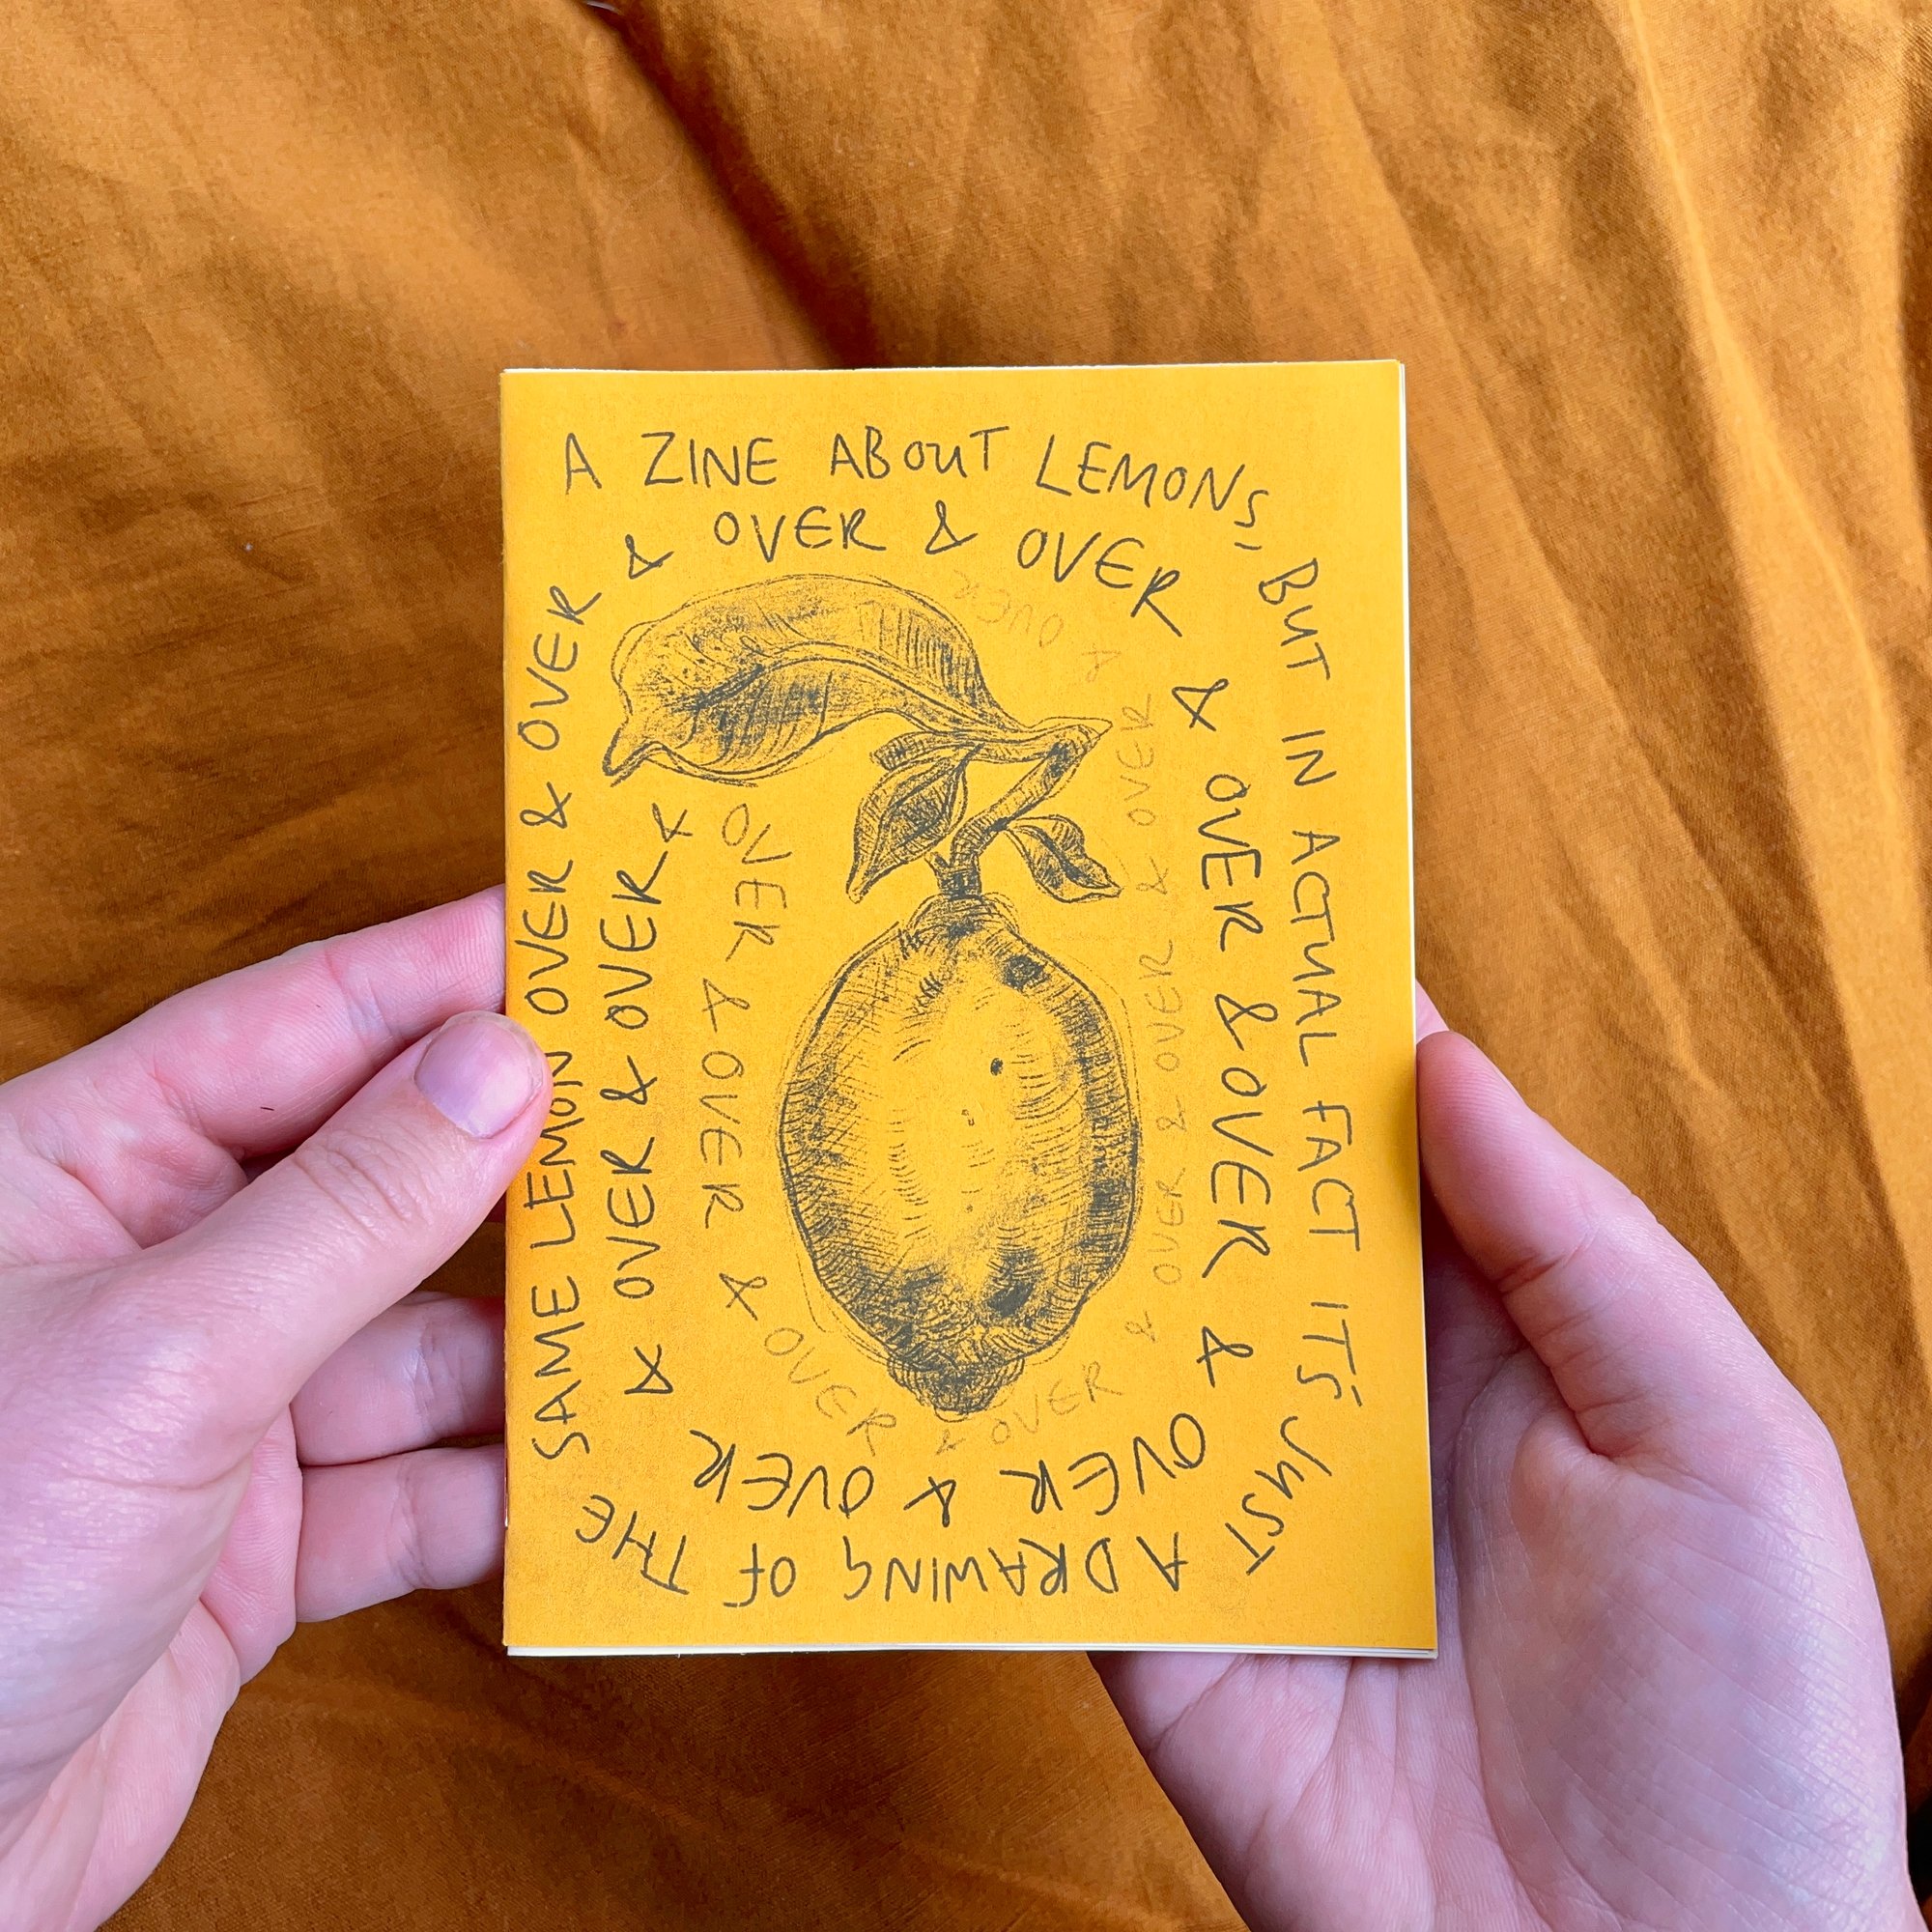 A ZINE ABOUT LEMONS,
BUT IN ACTUAL FACT IT'S JUST
A DRAWING OF THE
SAME LEMON OVER & OVER
& OVER & OVER
& OVER & OVER &
OVER & OVER
& OVER & OVER &
OVER & OVER &
OVER & OVER
& OVER & OVER & OVER
& OVER